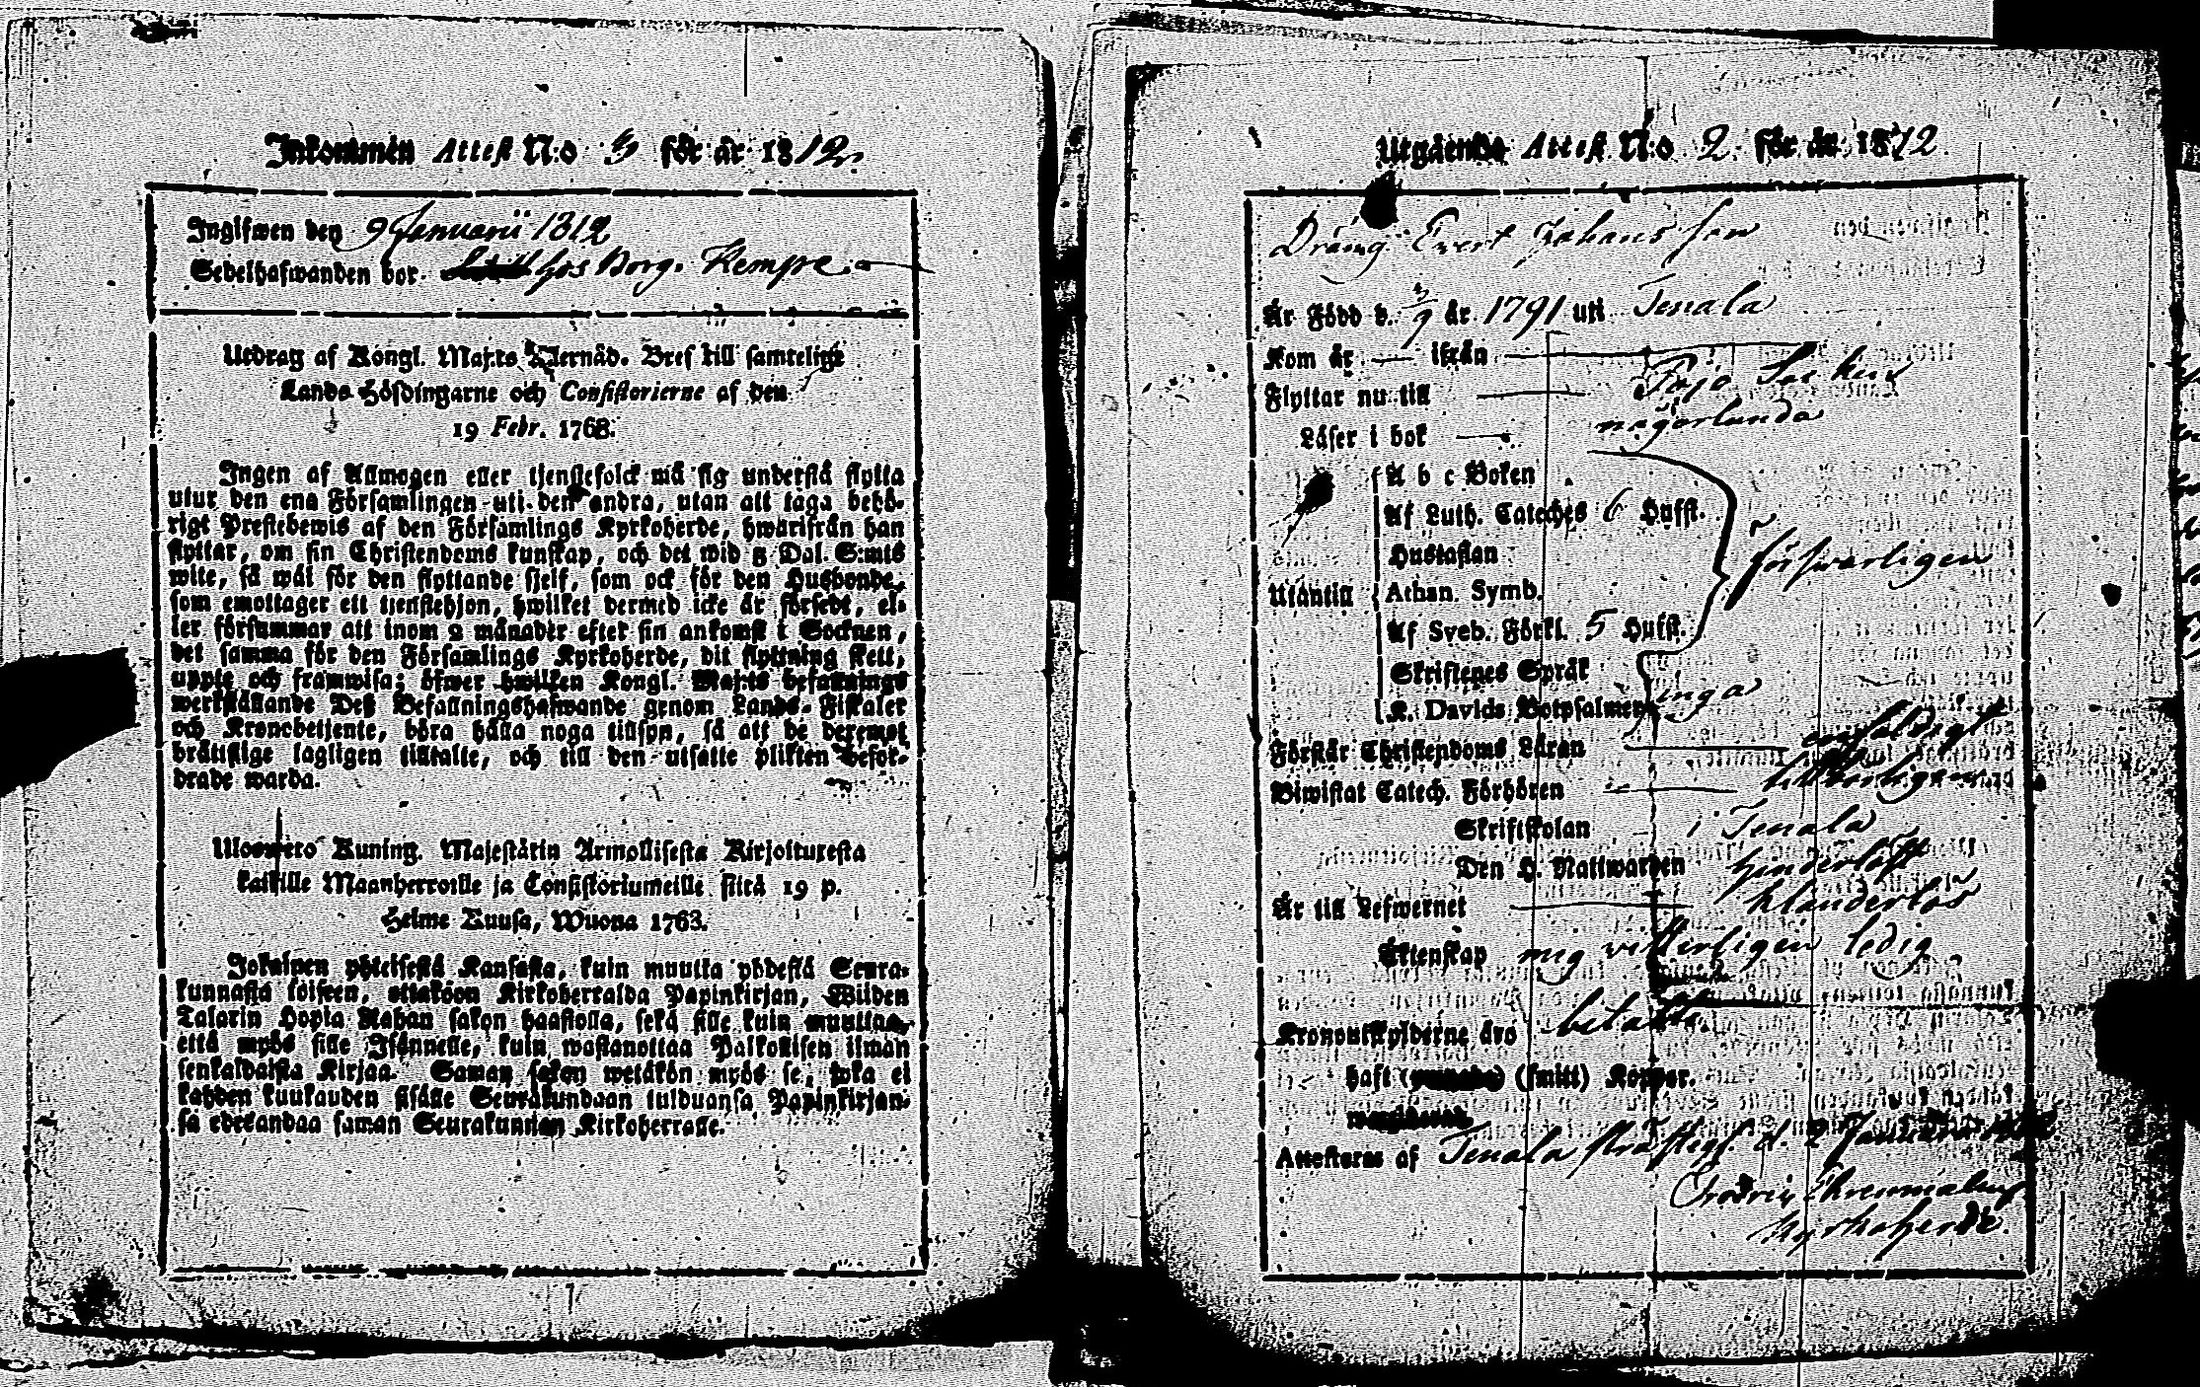 Inkommen Attest N:o 3 för år 1812.
Inglfwen den 9 Januarii 1812
Sedelhafwanden bor. hos Borg. Kempe.
Utdrag af Kongl. Maj:ts Bref till samtelige
Lands Höfdingarne och Consistorierne af den
19 Febr. 1768.
Ingen af Allmogen eller tjenstefolck må sig understå flytta
utur den ena Församlingen uti den andra, utan att taga behö-
rigt Prestebewis af den Församlings Kyrkoherde, hwarifrån han
flyttar, om sin Christendoms kunskap, och det wid Dal. S:mts
wite, så wäl för den flyttande sjelf, som ock för den Husbonde,
som emottager ett tjenstehjon, hwilket dermed icke är försedt, el-
ler försummar att inom 2 månader efter sin ankomst i Socknen,
det samma för den Församlings Kyrkoherde, dit flyttning skett,
uppte och framwisa; öfwer hwilken Kongl. Maj:ts befallnings
werkställande Deß Befallningshafwande genom Lands-Fiskaler
och Kronobetjente, böra hålla noga tillsyn, så att de deremot
bråttslige lagligen tilltalte, och till den utsatte plikten befor-
drade warda.
Ulosweto Kuning. Majestätin Armollisesta Kirjoituxesta
kaikille Maanherroille ja Consistoriumeille siitä 19 p.
Helme Kuusa, Wuona 1763.
Jokaipen yhteisestä Kansasta, kuin muutta yhdestä Seura-
kunnasta toiseen, ottakoon Kirkoherralda Papinkirjan, Wiiden
Talarin Hopia Rahan sakon haastolla, sekä sille kuin muuttaa,
että myös sille Isännelle, kuin wastanottaa Palkollisen ilman
senkaldaista Kirjaa. Saman sakon wetäkön myös se, joka ei
kahden kuukauden sisälle Seurakundaan tulduansa Papinkirjan-
sa edesandaa saman Seurakunnan Kirkoherralle.
Utgående Attest N:o 2. för år 1812.
Dräng Evert Johansson
Är Född d. 3/9 år 1791 uti Tenala
Kom år — ifrån —
Flyttar nu till — Pojo Socken
Läser i bok — någorlunda
A b c Boken
Af Luth. Cateches 6 Hufst.
Hustaflan
Utantill Athan. Symb. förswarligen
Af Sveb. Förkl. 5 Hufst.
Skriftenes Språk
K. Davids Botpsalmer inga
Förstår Christendoms Läran — enfaldigt
Biwistat Catech. Förhören —
Skriftskolan i Tenala
Den H. Nattwarden hinderlöst
Är till Lefwernet — klanderlös
Äktenskap mig vitterligen ledig.
Kronoutskylderne äro betalte.
haft (smitt) Koppor.
Attesteras af Tenala d. 2 Januarii 1812
Kyrkoherde.